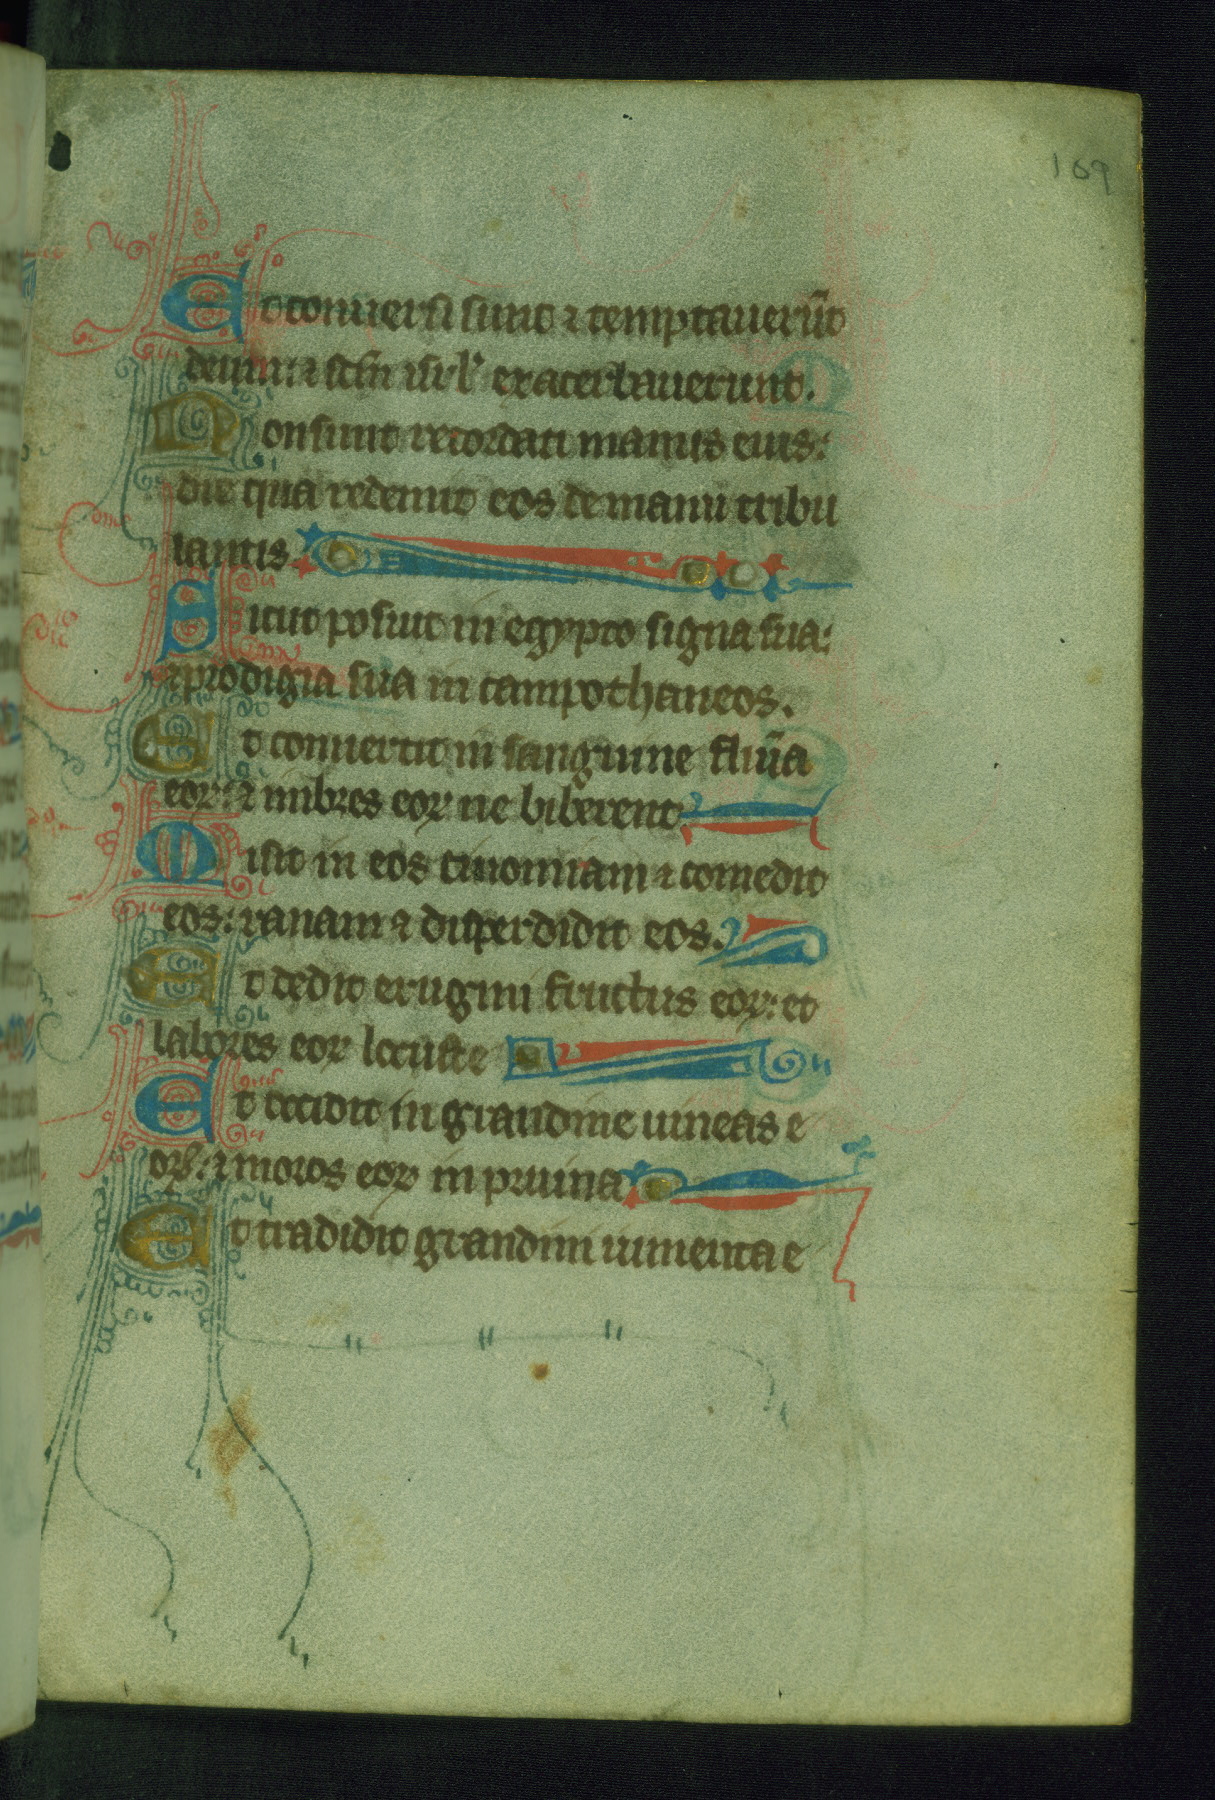 109
Et conuersi sunt ⁊ temptauerūt
deum: ⁊ scm̄ isrl' exacerbauerunt.
Non sunt recordati manus eius:
die qua redemit eos de manu tribu
lantis.
Sicut posuit in egypto signa sua:
⁊ prodigia sua in campo thaneos.
Et conuertit in sanguine flūia
eoꝝ: ⁊ imbres eoꝝ ne biberent.
Misit in eos cinomiam ⁊ comedit
eos: ranam ⁊ disperdidit eos.
Et dedit erugini fructus eoꝝ: et
labores eoꝝ locuste
Et occidit in grandine uineas e
oꝝ: ⁊ moros eoꝝ in pruina
Et tradidit grandini iumenta e